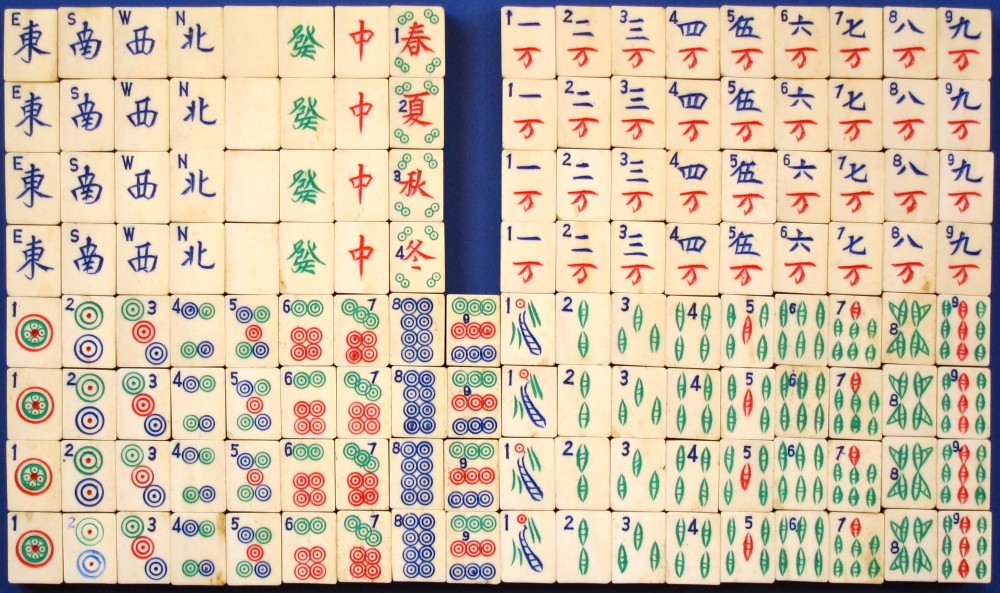 E 東 S 南 W 西 N 北 發 中 1 春 1 一 2 二 3 三 4 四 5 伍 6 六 7 七 8 八 9 九
万 万 万 万 万 万 万 万 万
E 東 S 南 W 西 N 北 發 中 2 夏 1 一 2 二 3 三 4 四 5 伍 6 六 7 七 8 八 9 九
万 万 万 万 万 万 万 万 万
E 東 S 南 W 西 N 北 發 中 3 秋 1 一 2 二 3 三 4 四 5 伍 6 六 7 七 8 八 9 九
万 万 万 万 万 万 万 万 万
E 東 S 南 W 西 N 北 發 中 4 冬 1 一 2 二 3 三 4 四 5 伍 6 六 7 七 8 八 9 九
万 万 万 万 万 万 万 万 万
1 2 3 4 5 6 7 8 9 1 2 3 4 5 6 7 8 9
1 2 3 4 5 6 7 8 9 1 2 3 4 5 6 7 8 9
1 2 3 4 5 6 7 8 9 1 2 3 4 5 6 7 8 9
1 2 3 4 5 6 7 8 9 1 2 3 4 5 6 7 8 9